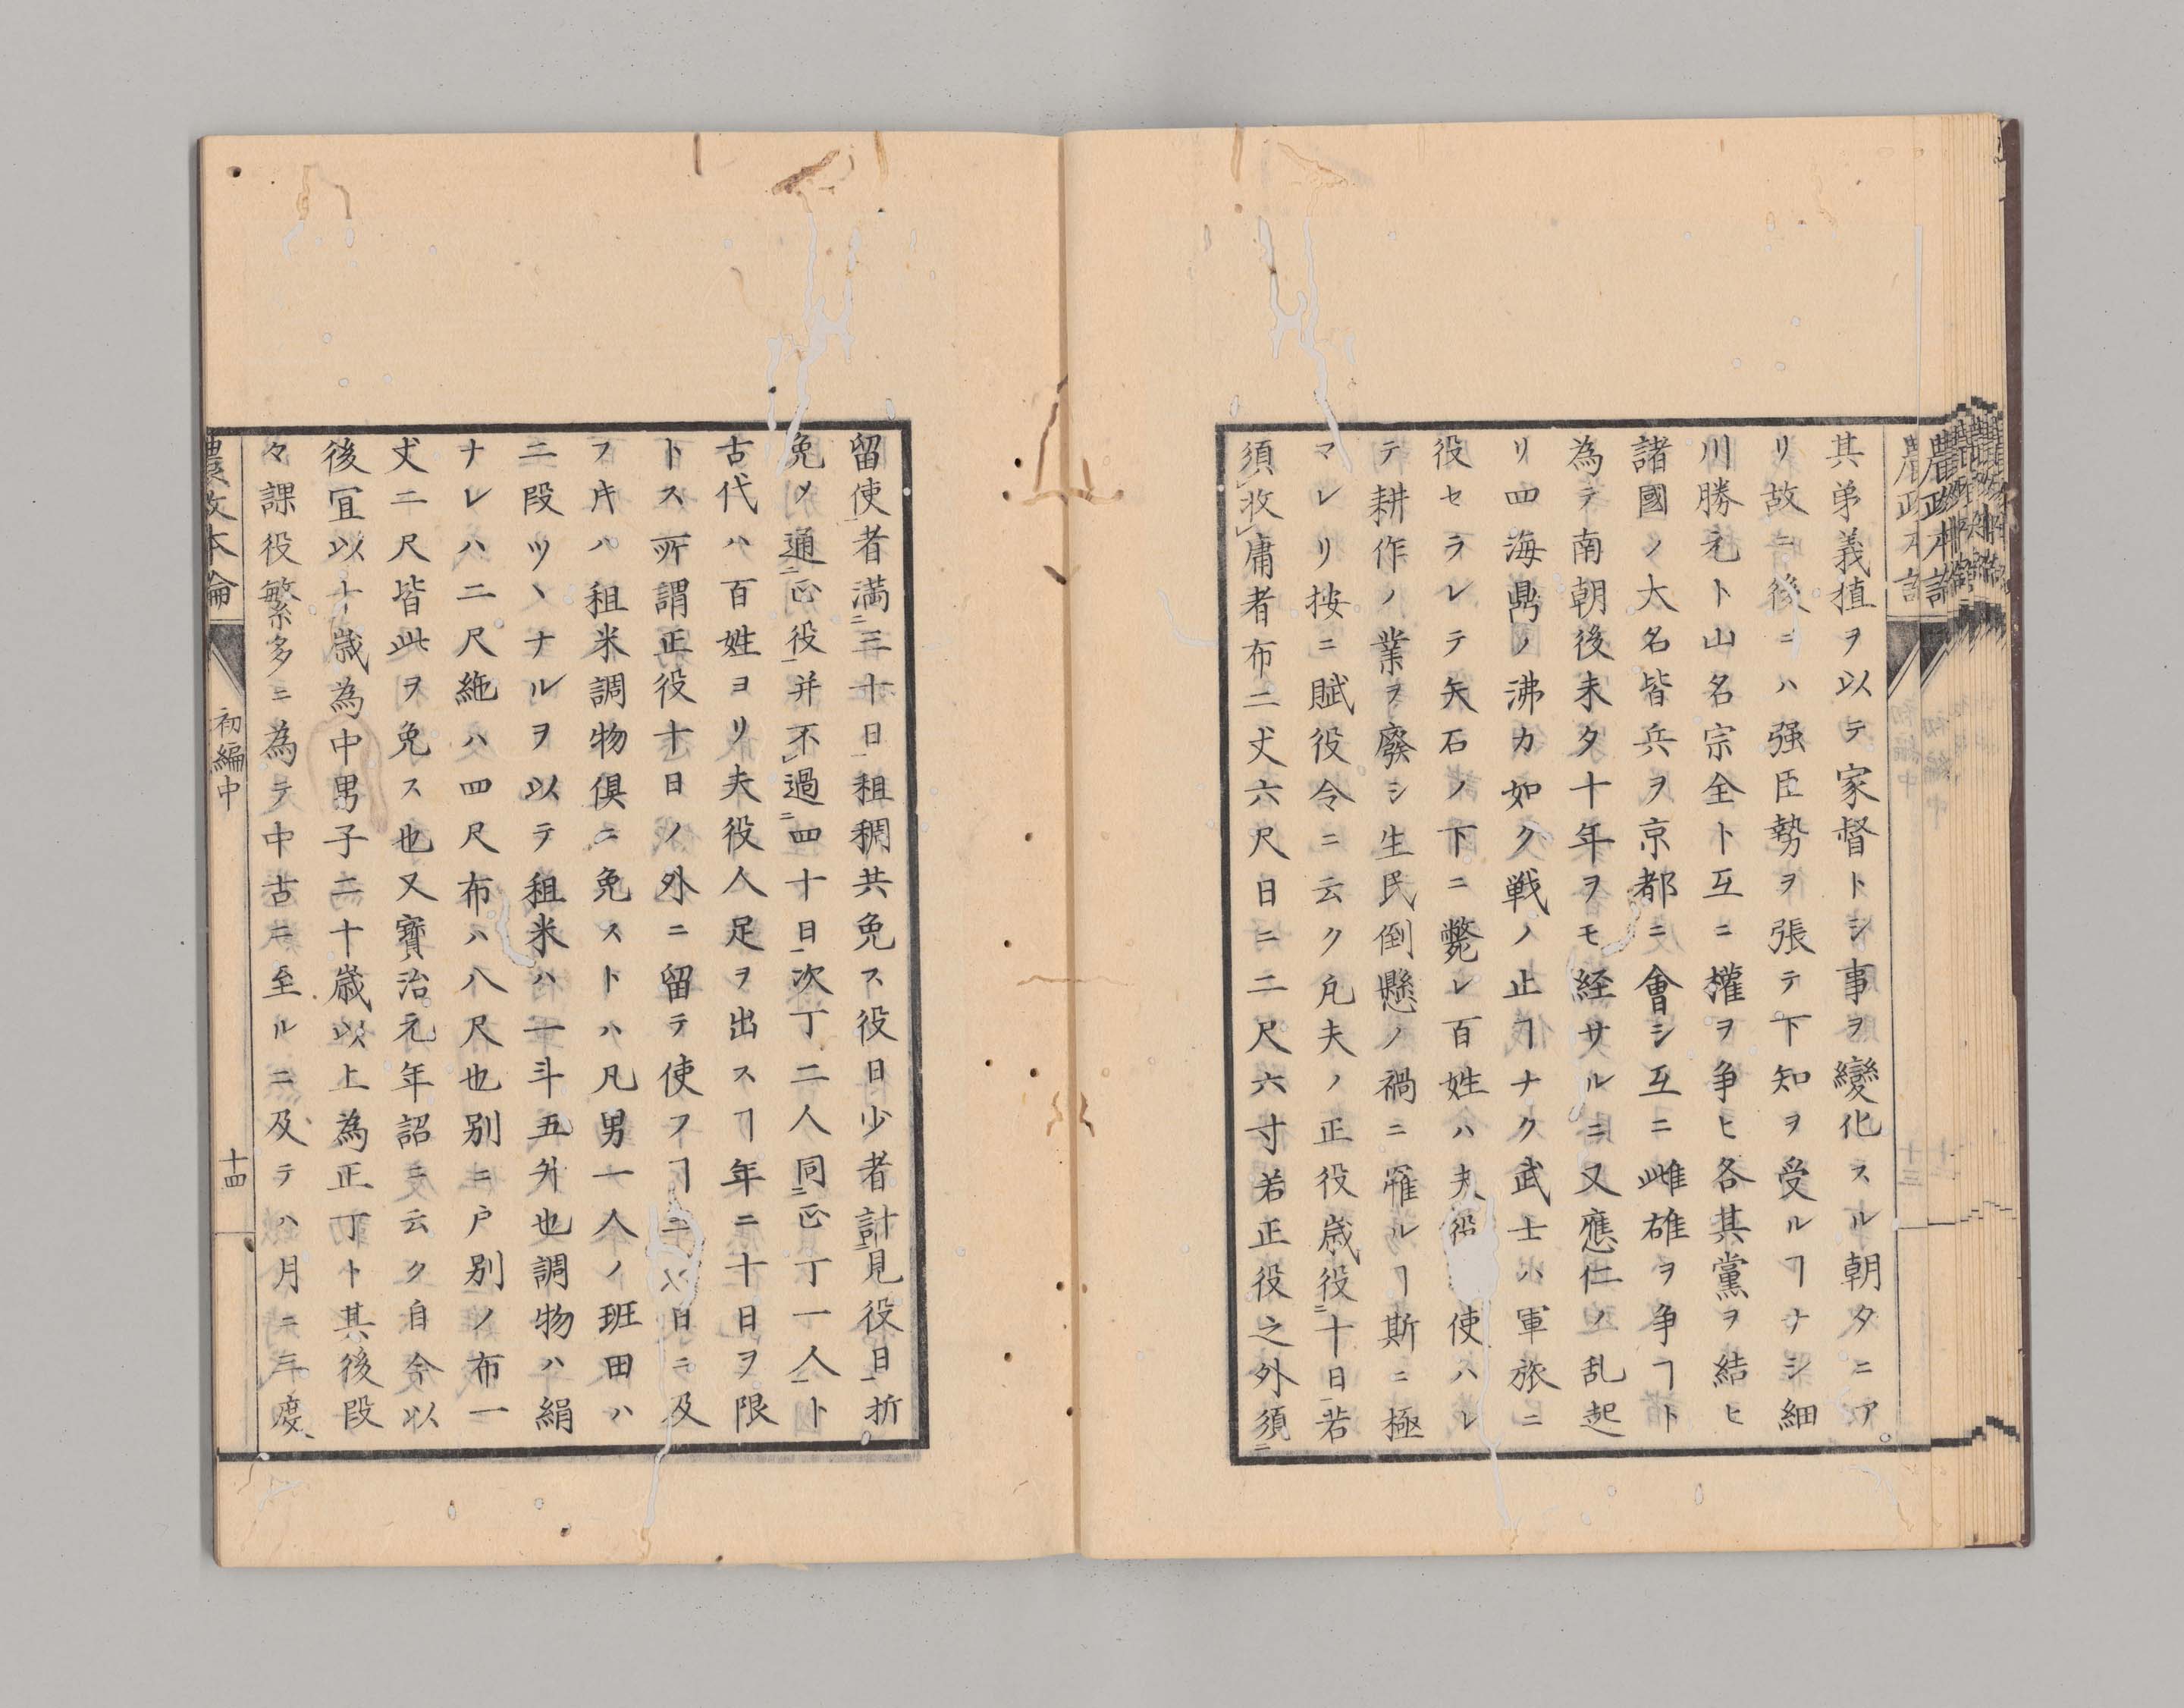 其弟義植ヲ以テ家督トシ事ヲ變化スル朝タニア
リ故ニ後ニハ强臣勢ヲ張テ下知ヲ受ルヿナシ細
川勝元ト山名宗全ト互ニ權ヲ争ヒ各其黨ヲ結ヒ
諸國ノ大名皆兵ヲ京都ニ會シ互ニ雌雄ヲ争フヿト
為テ南朝後未タ十年ヲモ経サルニ又應仁ノ乱起
リ四海鼎ノ沸カ如ク戦ノ止ヿナク武士ハ軍旅ニ
役セラレテ矢石ノ下ニ斃レ百姓ハ夫役使ハレ
テ耕作ノ業ヲ廢シ生民倒懸ノ禍ニ罹ルヿ斯ニ極
マレリ按ニ賦役令ニ云ク凡夫ノ正役歳役二十日一若
須レ收レ庸者布二丈六尺日ニ二尺六寸若正役之外須二
留使一者満二三十日一租稠共免ス役日少者計二見役日一折
免メ通二正役一并不レ過二四十日一次丁二人同二正丁一人一ト
古代ハ百姓ヨリ夫役人足ヲ出スヿ年ニ十日ヲ限
トス所謂正役十日ノ外ニ留テ使フヿ三以日ニ及
フキハ租米調物俱ニ免ストハ凡男一人ノ班田ハ
二段ツヽナルヲ以テ租米ハ一斗五升也調物ハ絹
ナレハ二尺絁ハ四尺布ハ八尺也别ニ户别ノ布一
丈二尺皆此ヲ免ス也又寶治元年詔ニ云ク自今以
後宜以十八歳為中男子二十歳以上為正丁ト其後段
々課役繁多ニ為テ中古ニ至ルニ及テハ月ニ三度
農政本論
初編中
十四